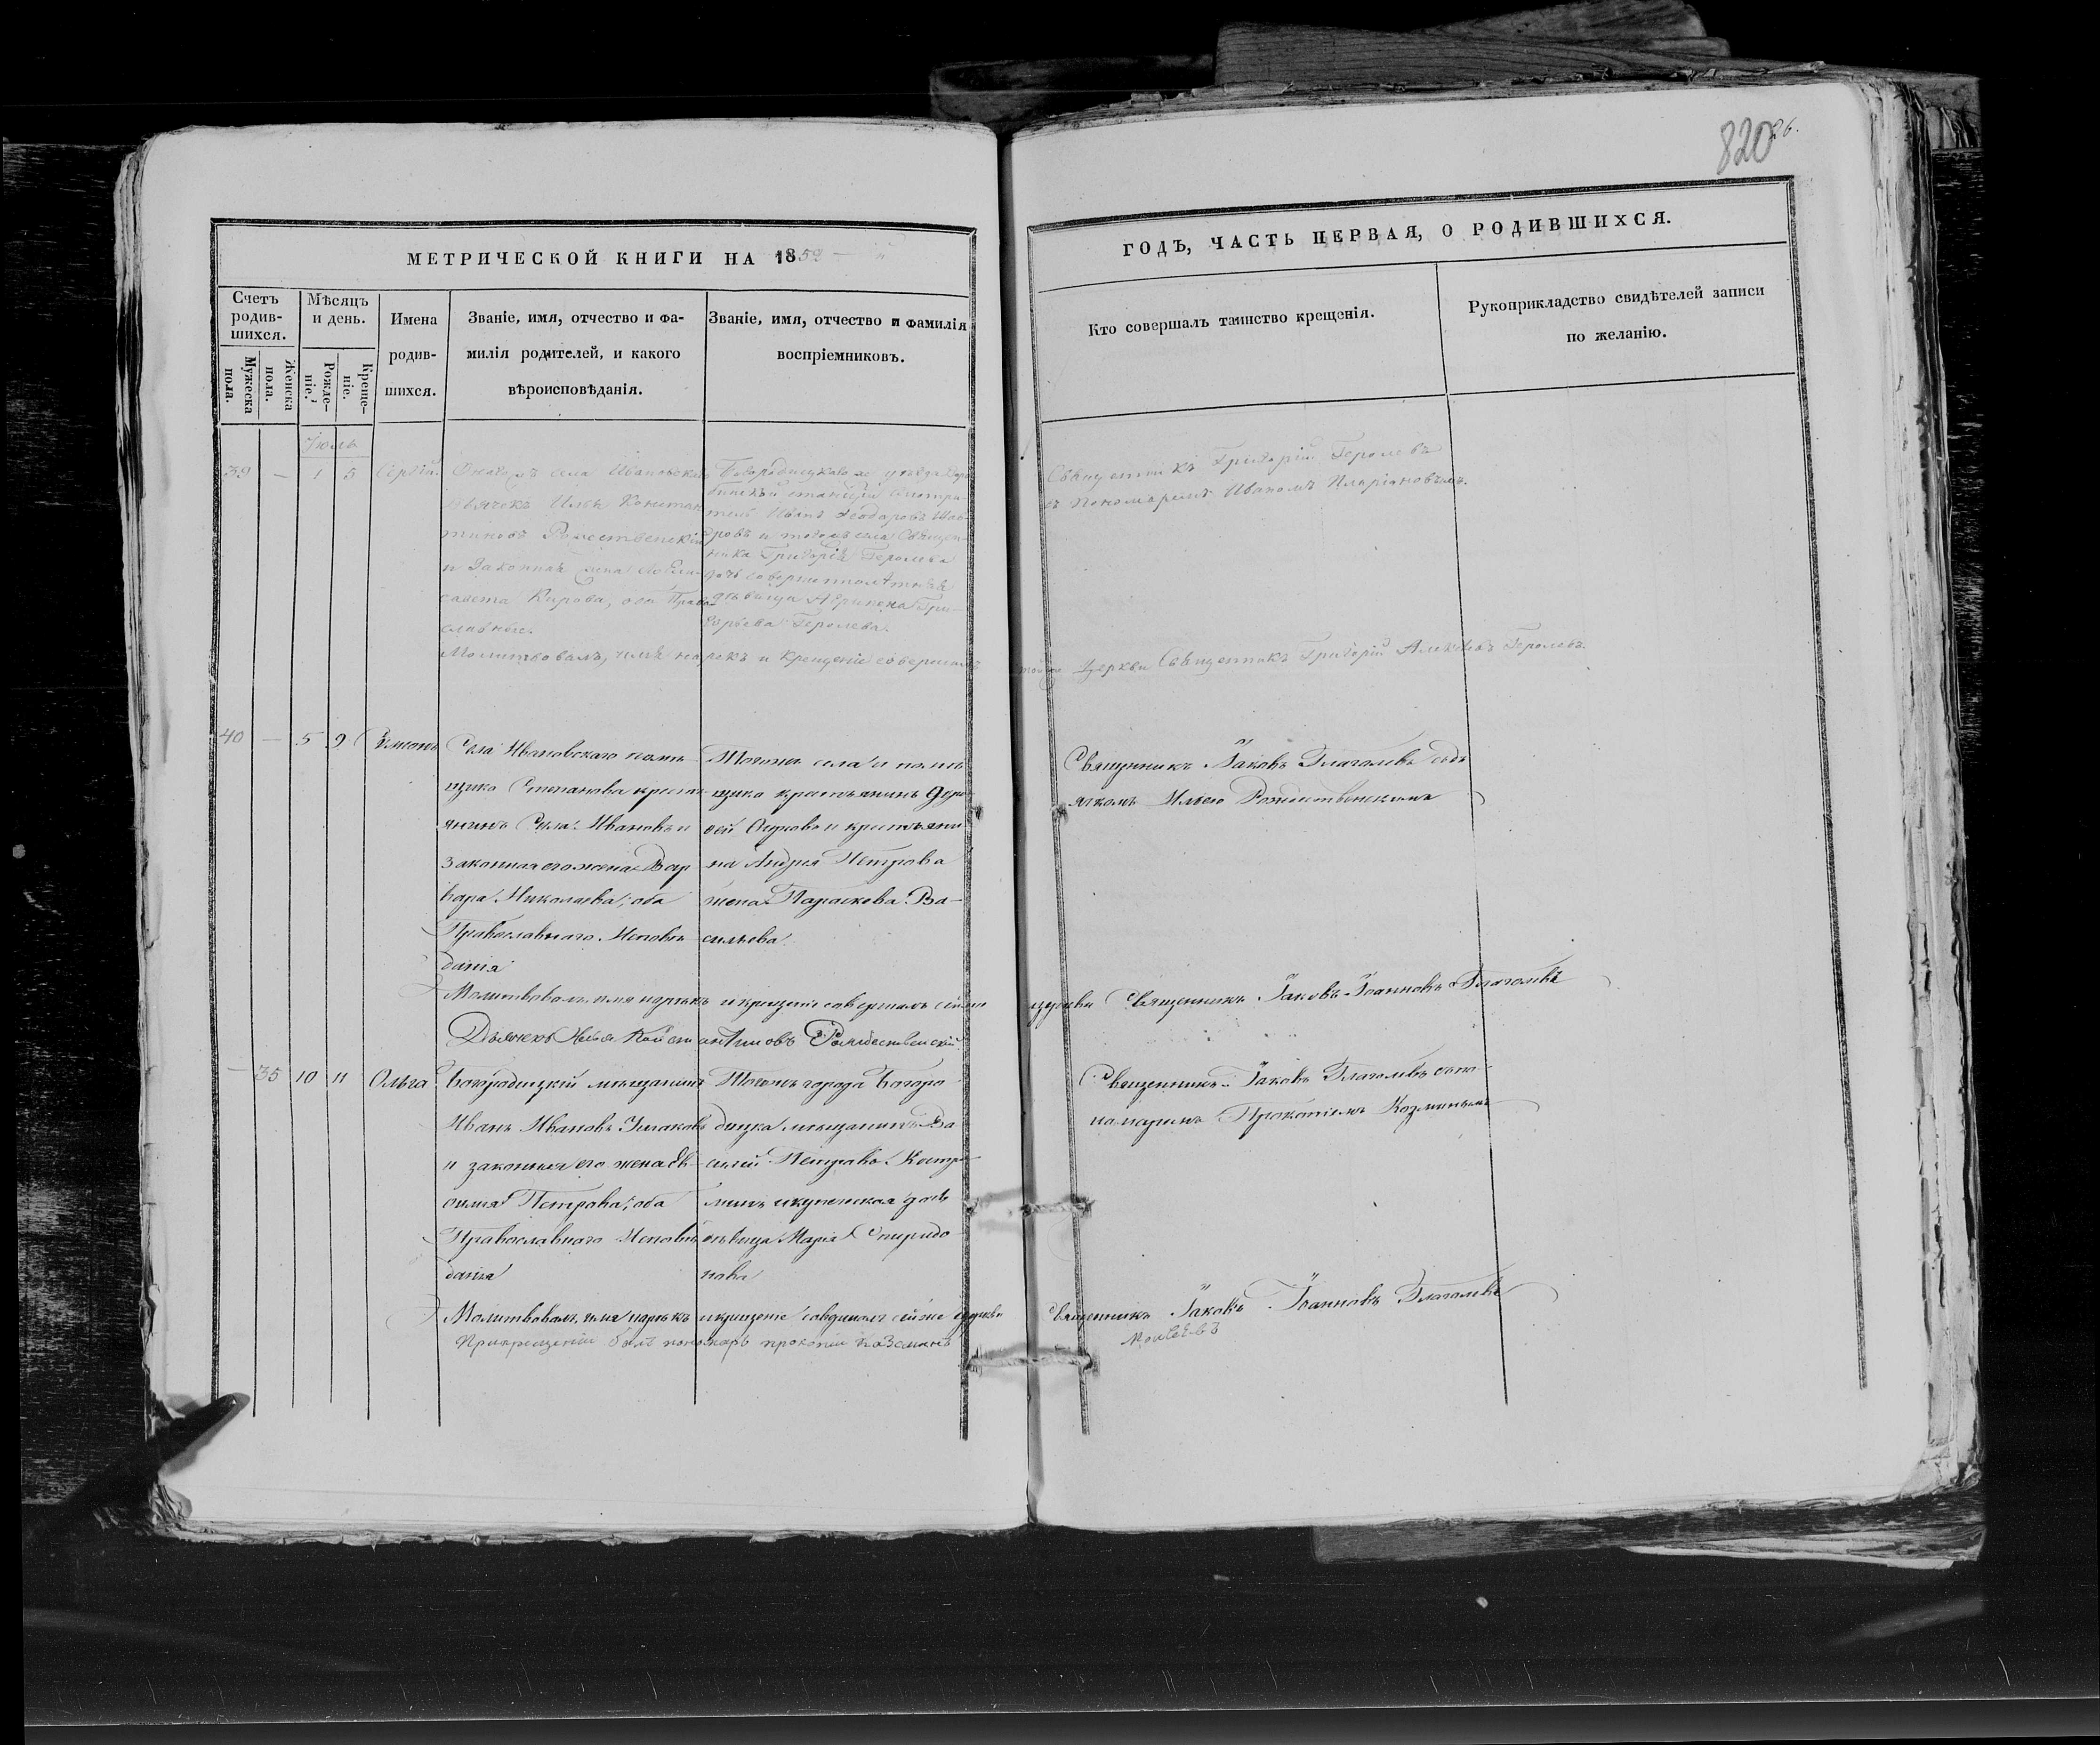 820 26.
МЕТРИЧЕСКОЙ КНИГИ НА 1852
ГОДЪ, ЧАСТЬ ПЕРВАЯ, О РОДИВШИХСЯ.
Счетъ родив-шихся.
Мужеска пола.
Женска пола.
Мѣсяцъ и день.
Рожде-ніе.
Креще-ніе.
Имена
родив-
шихся.
Званіе, имя, отчество и фа-
милія родителей, и какого
вѣроисповѣданія.
Званіе, имя, отчество и фамилія
воспріемниковъ.
Кто совершалъ таинство крещенія.
Рукоприкладство свидѣтелей записи
по желанію.
Іюль
39 — 1 5 Сергій
села Ивановскаго
Дьячекъ Илья Констан
тиновъ Рождественскій
и Законная жена Ели-
савета Кирова, оба Право
славные.
Богородицкаго уѣзда
станціи смотри-
тель Иванъ Феодоровъ
ровъ и тогожъ села Священ-
ника Григорія Геролева
дочь совершеннолѣтняя
дѣвица Агрипена Гри-
горьева Геролева.
Священникъ Григорій Геролевъ
съ Пономаремъ Иваномъ Иларіоновымъ.
Молитвовалъ, имя нарекъ и крещеніе совершалъ той же Церкви Священникъ Григорій Алексѣевъ Геролевъ.
40 — 5 9 Симонъ
Села Ивановскаго помѣ-
щика Степанова кресть-
янинъ Сила Ивановъ и
законная его жена Вар
вара Николаева; оба
Православнаго Исповѣ
данія
Тогожъ села и помѣ
щика крестьянинъ
и крестьяни
на Андрея Петрова
жена Параскева Ва-
сильева
Священникъ Іаковъ Глаголевъ съ дь
ячкомъ Ильею Рождественскимъ
Молитвовалъ имя нарекъ и крещеніе совершалъ сей же церкви Священникъ Іаковъ Іоанновъ Глаголевъ
Дьячекъ Илья Константиновъ Рождественскій
— 35 10 11 Ольга
Богородицкій мещанинъ
Иванъ Ивановъ
и законная его жена Ѳе-
Петрова; оба
Православнаго Исповѣ
данія
Тогожъ города Богоро-
дицка мещанинъ Ва
силій Петровъ
и купеческая дочь
дѣвица Марія Спиридо
нова
Священникъ Іаковъ Глаголевъ съ по-
номаремъ Прокопіемъ Козминымъ
Молитвовалъ, имя нарекъ и крещеніе совершалъ сей же церкви Священникъ Іаковъ Іоанновъ Глаголевъ
При крещеніи былъ пономарь прокопій Казминъ Моисеевъ